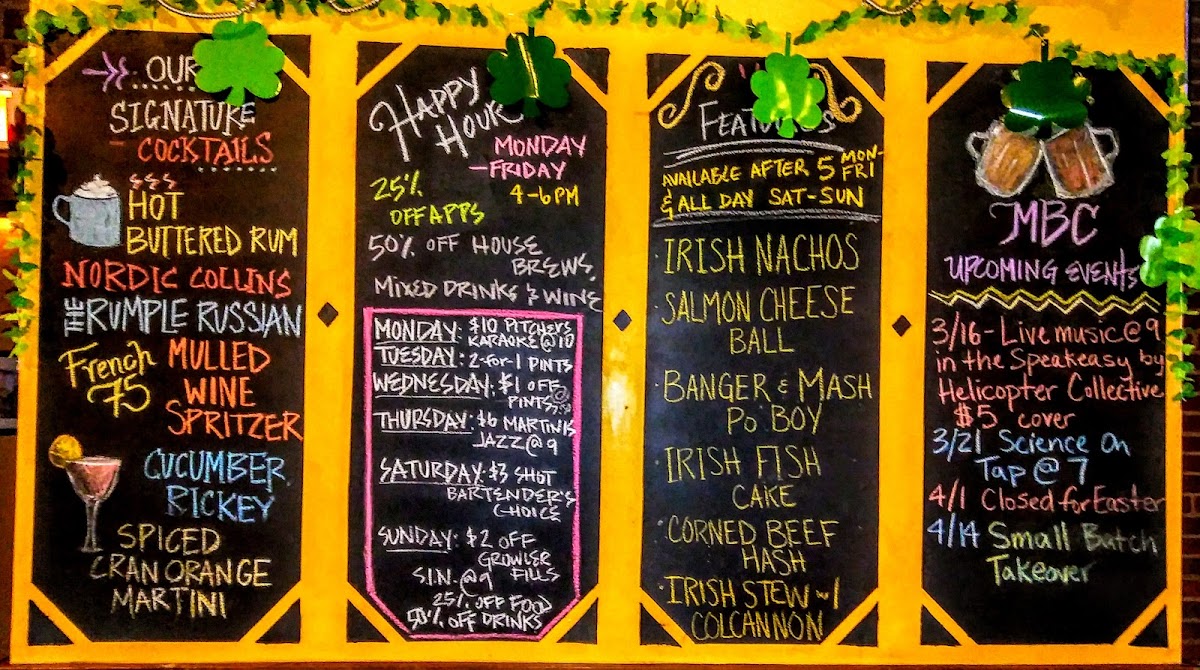 OUR
SIGNATURE
COCKTAILS
HOT
BUTTERED RUM
NORDIC COLLINS
THE RUMPLE RUSSIAN
French 75
MULLED
WINE
SPRITZER
CUCUMBER
RICKEY
SPICED
CRAN ORANGE
MARTINI
HAPPY
HOUR
MONDAY
-FRIDAY
4-6PM
25%
OFF APPS
50% OFF HOUSE
BREWS,
MIXED DRINKS & WINE
MONDAY: $10 PITCHERS
KARAOKE@10
TUESDAY: 2-for-1 PINTS
WEDNESDAY: $1 OFF
PINTS
THURSDAY: $6 MARTINIS
JAZZ@9
SATURDAY: $3 SHOT
BARTENDER'S
CHOICE
SUNDAY: $2 OFF
GROWLER
FILLS
S.I.N. @9
25% OFF FOOD
50% OFF DRINKS
FEATURES
AVAILABLE AFTER 5 MON-FRI
& ALL DAY SAT-SUN
· IRISH NACHOS
· SALMON CHEESE
BALL
· BANGER & MASH
PO BOY
· IRISH FISH
CAKE
· CORNED BEEF
HASH
· IRISH STEW w/
COLCANNON
MBC
UPCOMING EVENTS
3/16-Live music@9
in the Speakeasy by
Helicopter Collective
$5 cover
3/21 Science On
Tap@7
4/1 Closed for Easter
4/14 Small Batch
Takeover